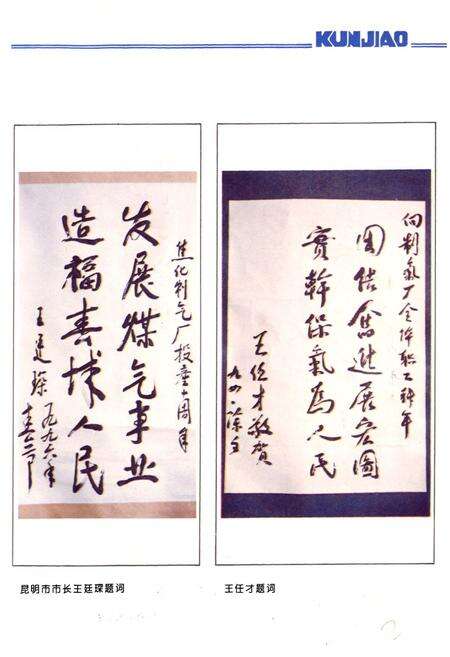 KUNJIAO
焦化制气厂投产十周年
发展煤气事业
造福春城人民
王廷琛
一九九六年
向制氣厂全体职工拜年
团结奋进展宏图
實幹保氣為人民
王任才敬贺
九四.除夕
昆明市市长王廷琛题词
王任才题词
2